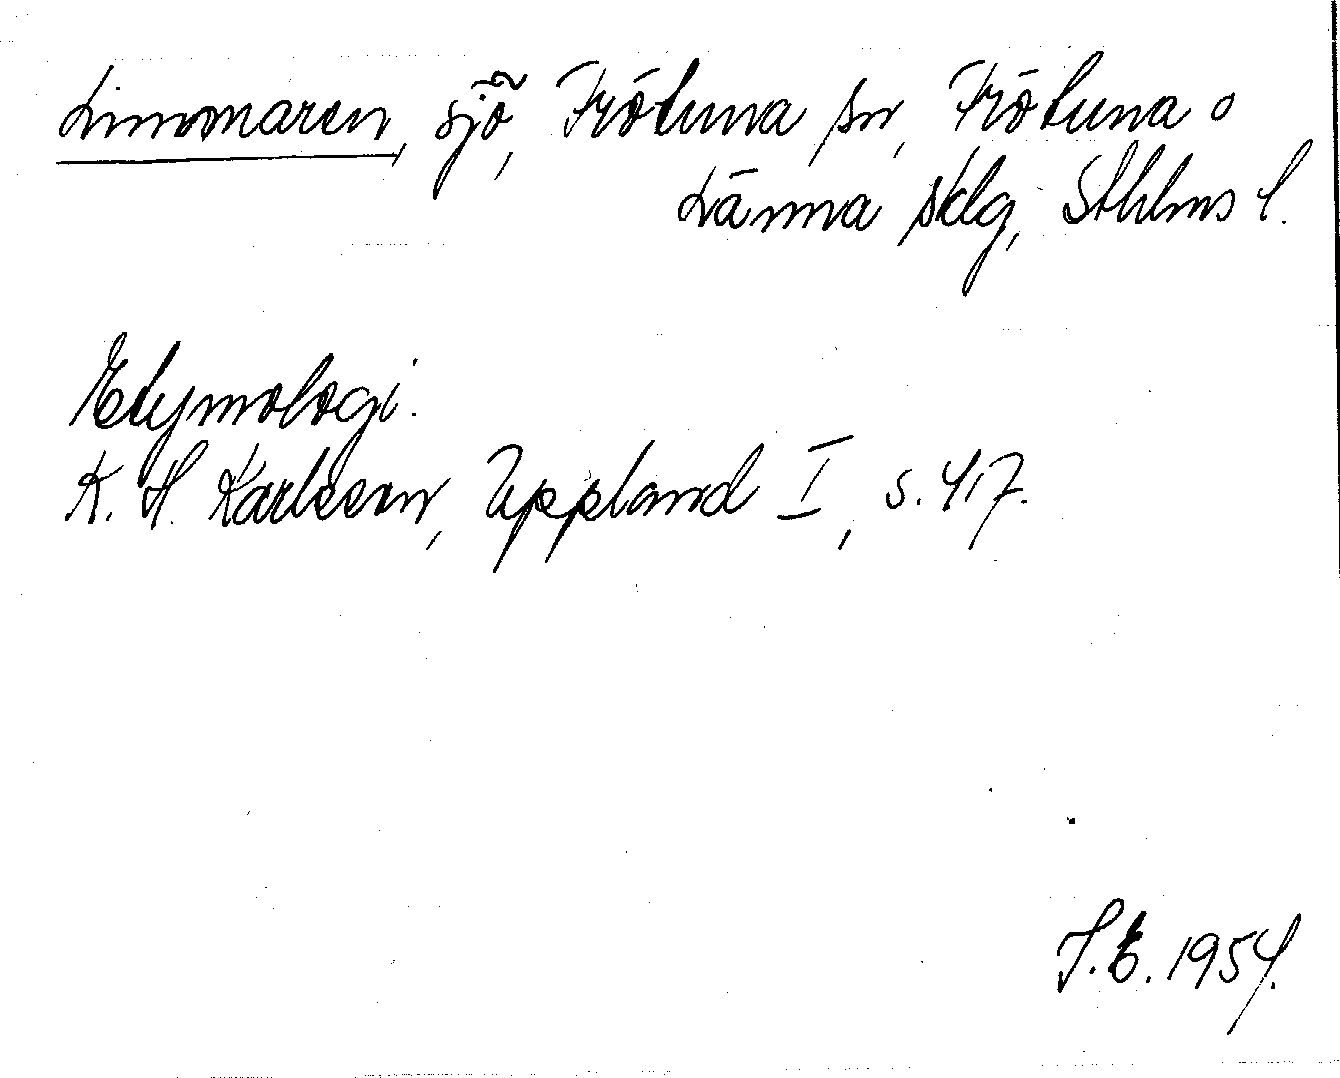 Limmaren, sjö, Frötuna sn, Frötuna o
Länna sklg, Sthlms l.
Etymologi.
K. H. Karlsson, Uppland I, s. 417.
S.E. 1954.